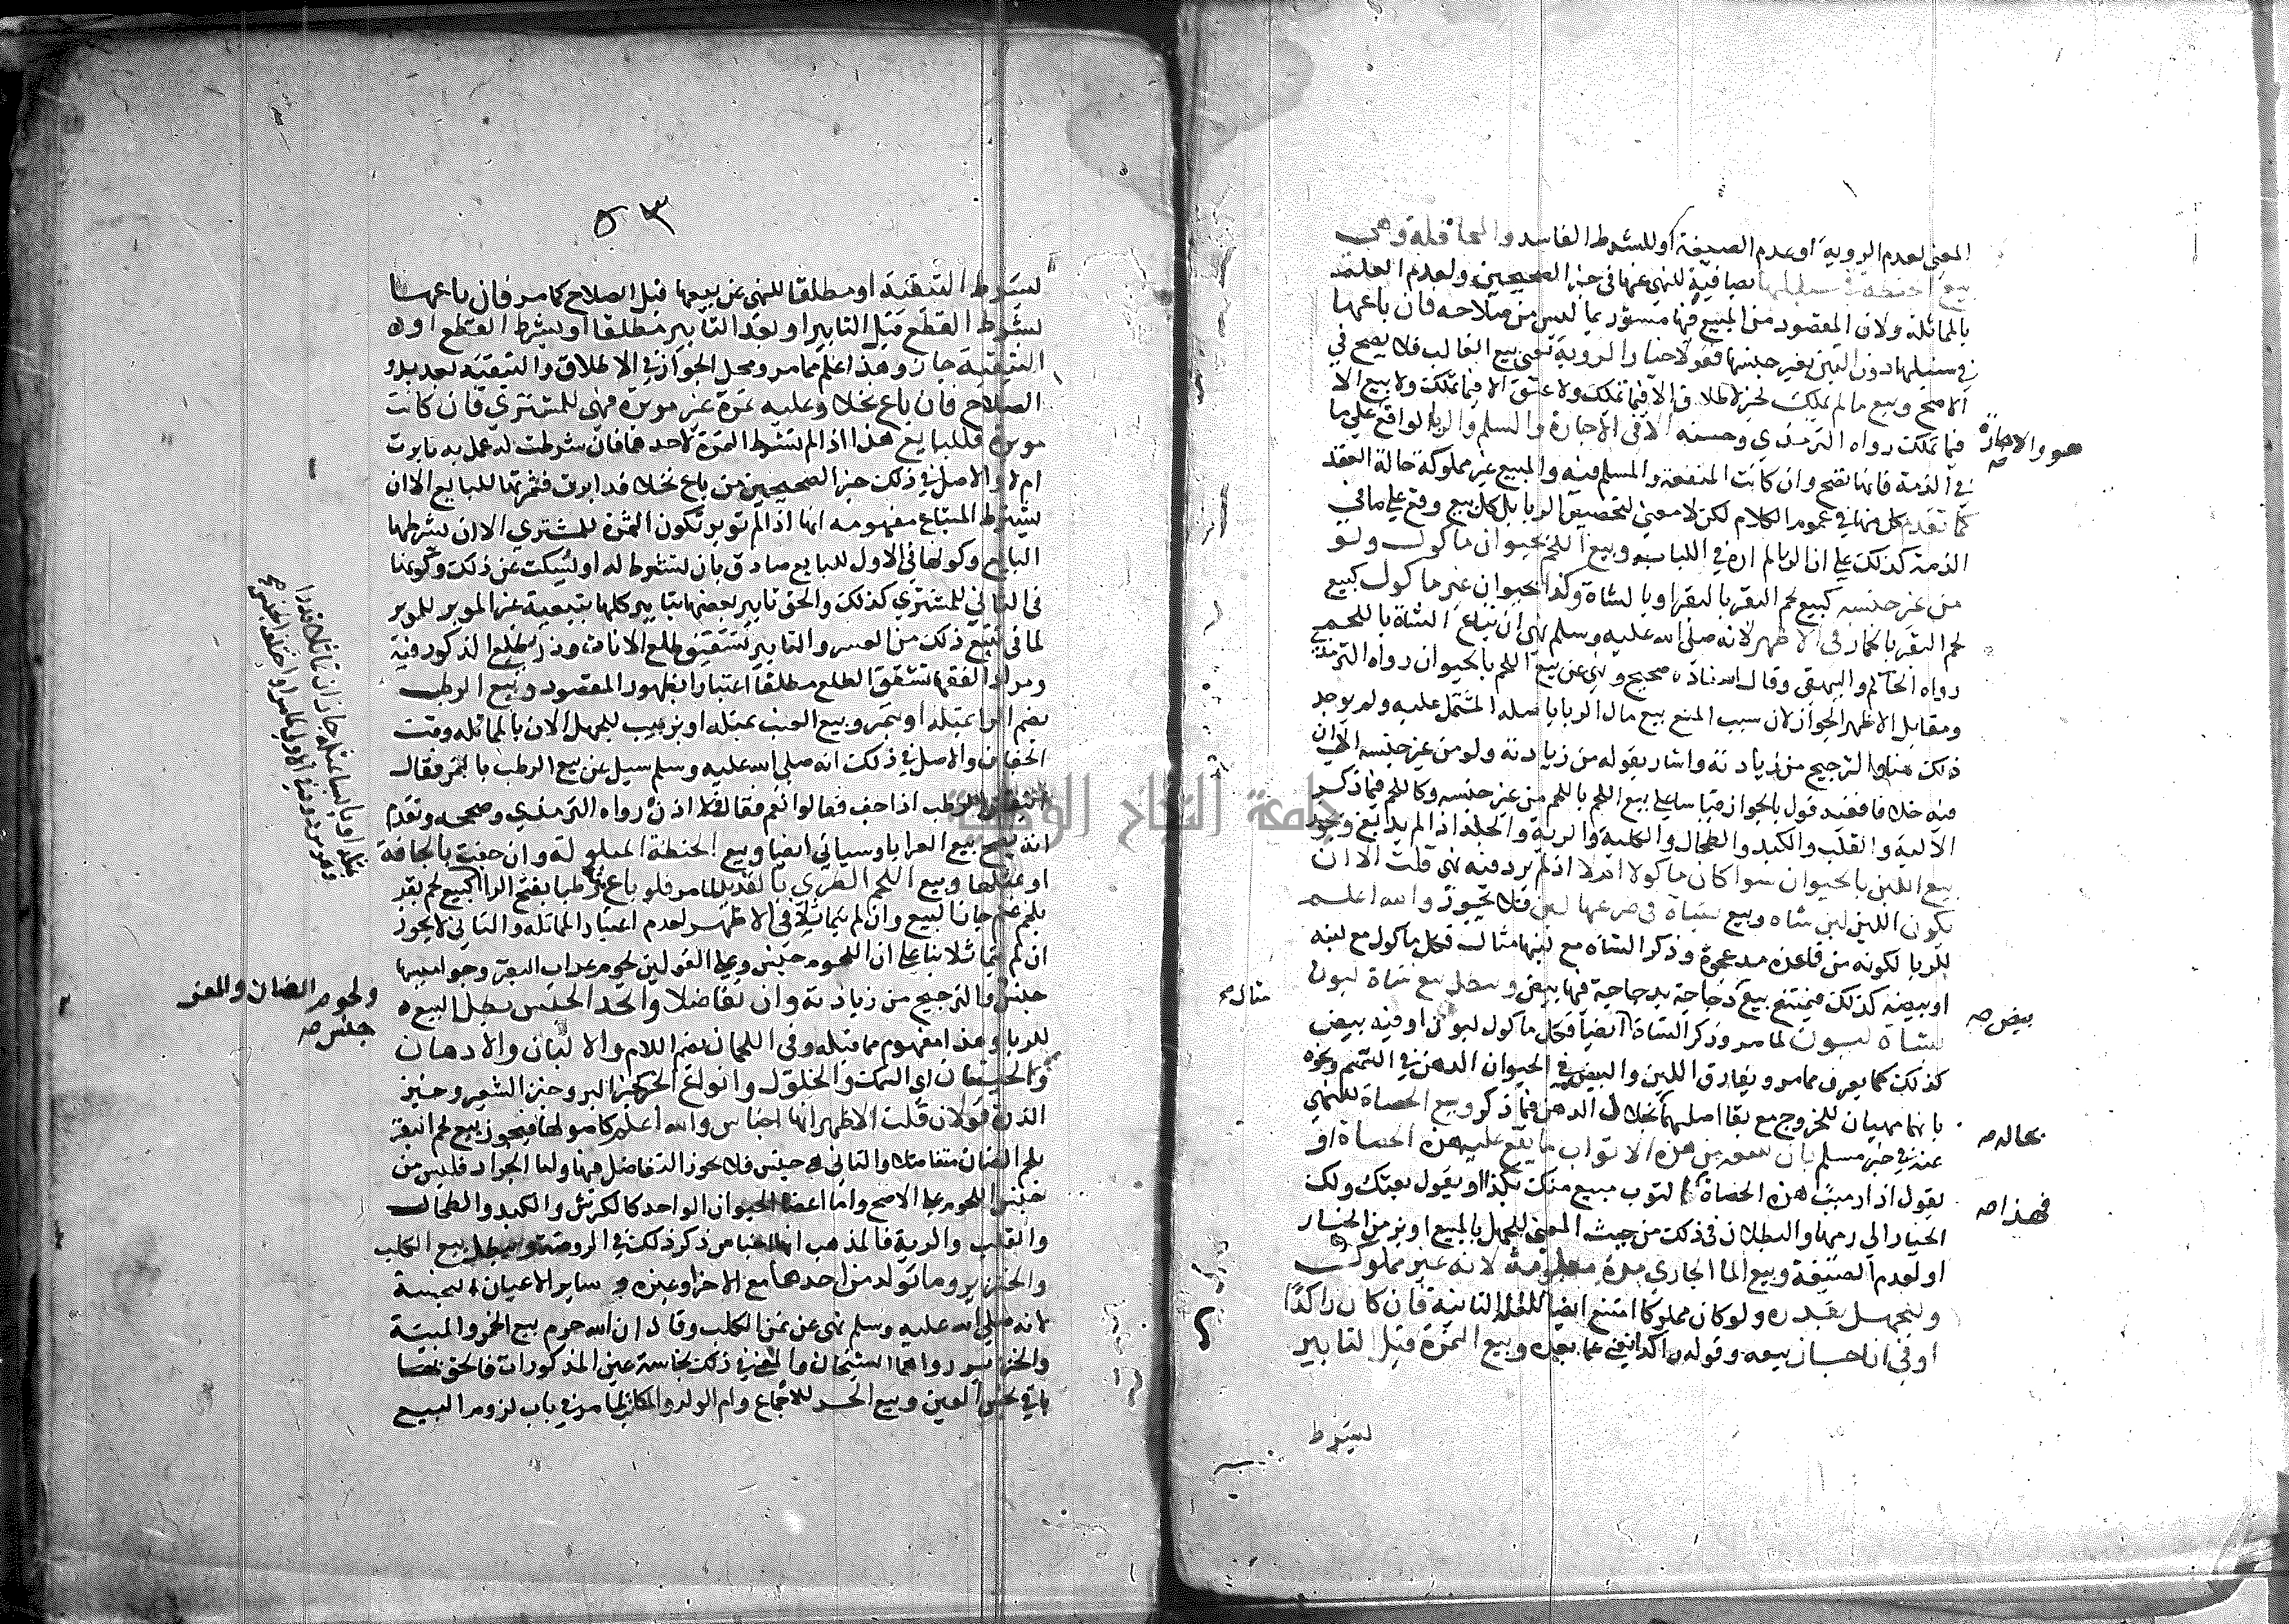 المعنى لعدم الروية او عدم الصيغة او للشرط الفاسد والمحاقلة وهي
بيع الحنطة في سنبلها بصافية للنهي عنها في خبر الصحيحين ولعدم العلم
بالمماثلة ولان المقصود من المبيع فيها مستور بما ليس من صلاحه فان باعها
في سنبلها دون التبن بغير جنسها فقولا خيار الروية تعني بيع الغائب فلا يصح في
الاصح وبيع ما لم يملك لخبر لا طلاق الا فيما تملك ولا عتق الا فيما تملك ولا بيع الا
فيما تملك رواه الترمذي وحسنه الا في الاجارة والسلم والربا الواقع على ما
هو والاجارة صح
في الذمة فانها تصح وان كانت المنفعة والمسلم فيه والمبيع غير مملوكة حالة العقد
كما تقدم كل منها في عموم الكلام لكن لا معنى لتخصيص الربا بل كل بيع وقع على ما في
الذمة كذلك على ان الربا لم اره في اللباب وبيع اللحم بحيوان ماكول ولو
من غير جنسه كبيع لحم البقر بالبقر او بالشاة وكذا بحيوان غير ماكول كبيع
لحم البقر بالحمار في الاظهر لانه صلى الله عليه وسلم نهى ان تباع الشاة باللحم
رواه الحاكم والبيهقي وقال اسناده صحيح ونهى عن بيع اللحم بالحيوان رواه الترمذي
ومقابل الاظهر الجواز لان سبب المنع بيع مال الربا باصله المشتمل عليه ولم يوجد
ذلك هنا والترجيح من زيادته واشار بقوله من زيادته ولو من غير جنسه الى ان
فيه خلافا ففيه قول بالجواز قياسا على بيع اللحم باللحم من غير جنسه وكاللحم فيما ذكر
الالية والقلب والكبد والطحال والكلية والرية والجلد اذا لم يدبغ ويجوز
بيع اللبن بالحيوان سوا كان ماكولا ام لا اذ لم يرد فيه نهي قلت الا ان
يكون اللبن لبن شاه وبيع بشاة في ضرعها لبن فلا يجوز والله اعلم
للربا لكونه من قاعدة مد عجوة وذكر الشاه مع لبنها مثال فكل ماكول مع لبنه
مثال صح
او بيضه كذلك فيمتنع بيع دجاجة بدجاجة فيها بيض وبطل بيع شاة لبون
بيض صح
بشاة لبون لما مر وذكر الشاة ايضا فكل ماكول لبون او فيه بيض
كذلك كما يعرف مما مر ويفارق اللبن والبيض في الحيوان الدهن في السمسم ونحوه
بانهما مهيان للخروج مع بقا اصلهما بحالاف الدهن فيما ذكر وبيع الحصاة للنهي
بحاله صح
عنه في خبر مسلم بان يبيعه من هذه الاثواب ما يقع عليه هذه الحصاة او
يقول اذا رميت هذه الحصاة فهذا الثوب مبيع منك بكذا او يقول بعتك ولك
فهذا صح
الخيار الى رميها والبطلان في ذلك من حيث المعنى للجهل بالمبيع او بزمن الخيار
او لعدم الصيغة وبيع الما الجاري مدة معلومة لانه غير مملوك
وللجهل بقدره ولو كان مملوكا امتنع ايضا للعلة الثانية فان كان راكدا
او في انا جاز بيعه وقوله راكدا يغني عما بعده وبيع الثمرة قبل التابير
بشرط
٥٣
بشرط التبقية او مطلقا للنهي عن بيعها قبل الصلاح كما مر فان باعها
بشرط القطع قبل التابير او بعد التابير مطلقا او بشرط القطع او
التبقية جاز وهذا اعلم مما مر ومحل الجواز في الاطلاق والتبقية بعد بدو
الصلاح فان باع نخلا وعليه ثمرة غير موبرة فهي للمشتري فان كانت
موبرة فللبايع هذا اذا لم تشترط الثمرة لاحدهما فان شرطت له عمل به تابرت
ام لا والاصل في ذلك خبر الصحيحين من باع نخلا قد ابرت فثمرتها للبايع الا ان
يشترط المبتاع مفهومه انها اذا لم توبر تكون الثمرة للمشتري الا ان يشرطها
البايع وكونها في الاول للبايع صادق بان تشترط له او يسكت عن ذلك وكونها
في الثاني للمشتري كذلك والحق تابير بعضها بتابير كلها بتبعية غير الموبر للموبر
لما في تتبع ذلك من العسر والتابير تشقيق طلع الاناث وذر طلع الذكور فيه
ومراد الفقها تشقق الطلع مطلقا اعتبارا بظهور المقصود وبيع الرطب
بضم الرا بمثله او بتمر وبيع العنب بمثله او بزبيب للجهل الان بالمماثلة وقت
الجفاف والاصل في ذلك انه صلى الله عليه وسلم سيل عن بيع الرطب بالتمر فقال
اينقص الرطب اذا جف فقالوا نعم فقال فلا اذن رواه الترمذي وصححه وتقدم
انه يصح بيع العرايا وسياتي ايضا وبيع الحنطة المبلولة وان جفت بالجافة
او بمثلها وبيع اللحم الطري بالقديد لما مر فلو باع رطبا بفتح الرا كبيع لحم بقر
بلحم غنم جاز البيع وان لم يتماثلا في الاظهر لعدم اعتبار المماثلة والثاني لا يجوز
ان لم يتماثلا بنا على ان اللحوم جنس وعلى القولين لحوم عراب البقر وجواميسها
جنس والترجيح من زيادته وان تفاضلا واتحد الجنس بطل البيع
ولحوم الضان والمعز
جنس صح
للربا وهذا مفهوم مما قبله وفي اللحمان بضم اللام والالبان والادهان
والحيتان اي السمك والخلول وانواع الخبز كخبز البر وخبز الشعير وخبز
الذرة قولان قلت الاظهر انها اجناس والله اعلم كاصولها فيجوز بيع لحم البقر
بلحم الضان متفاضلا والثاني هي جنس فلا يجوز التفاضل فيها واما الجراد فليس من
جنس اللحوم على الاصح واما اعضا الحيوان الواحد كالكرش والكبد والطحال
والقلب والرية فالمذهب انها اجناس ذكر ذلك في الروضة وبطل بيع الكلب
والخنزير وما تولد من احدهما مع الاخر او غيره وساير الاعيان النجسة
لانه صلى الله عليه وسلم نهى عن ثمن الكلب وقال ان الله حرم بيع الخمر والميتة
والخنزير رواهما الشيخان والمعنى في ذلك نجاسة عين المذكورات فالحق بها
باقي نجس العين وبيع الحر للاجماع وام الولد والمكاتب لما مر في باب لزوم البيع